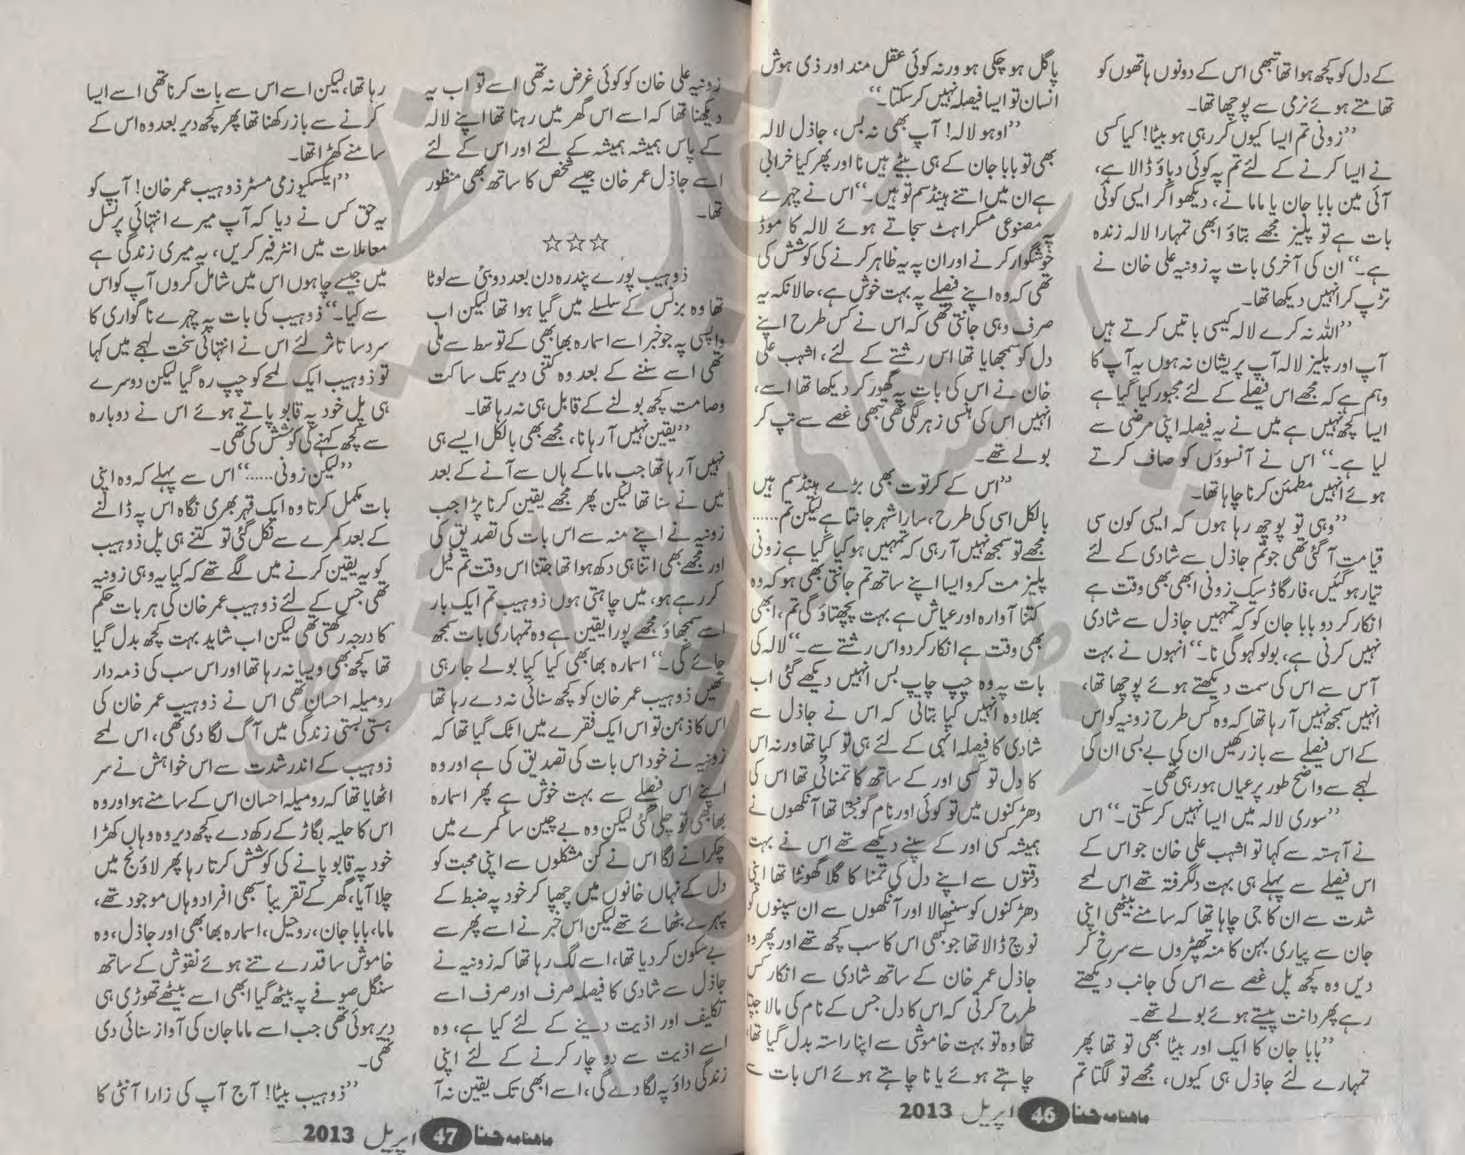 کے دل کو کچھ ہوا تھا تبھی اس کے دونوں ہاتھوں کو
تھامتے ہوئے نرمی سے پوچھا تھا۔
”زونی تم ایسا کیوں کر رہی ہو بیٹا! کیا کسی
نے ایسا کرنے کے لئے تم پہ کوئی دباؤ ڈالا ہے،
آئی مین بابا جان یا ماما نے، دیکھو اگر ایسی کوئی
بات ہے تو پلیز مجھے بتاؤ ابھی تمہارا لالہ زندہ
ہے۔“ ان کی آخری بات پہ زونیہ علی خان نے
تڑپ کر انہیں دیکھا تھا۔
”اللہ نہ کرے لالہ کیسی باتیں کرتے ہیں
آپ اور پلیز لالہ آپ پریشان نہ ہوں یہ آپ کا
وہم ہے کہ مجھے اس فیصلے کے لئے مجبور کیا گیا ہے
ایسا کچھ نہیں ہے میں نے یہ فیصلہ اپنی مرضی سے
لیا ہے۔“ اس نے آنسوؤں کو صاف کرتے
ہوئے انہیں مطمئن کرنا چاہا تھا۔
”وہی تو پوچھ رہا ہوں کہ ایسی کون سی
قیامت آ گئی تھی جو تم جاذل سے شادی کے لئے
تیار ہو گئیں، فار گاڈ سیک زونی ابھی بھی وقت ہے
انکار کر دو بابا جان کو کہ تمہیں جاذل سے شادی
نہیں کرنی ہے، بولو کہو گی نا۔“ انہوں نے بہت
آس سے اس کی سمت دیکھتے ہوئے پوچھا تھا،
انہیں سمجھ نہیں آ رہا تھا کہ وہ کس طرح زونیہ کو اس
کے اس فیصلے سے باز رکھیں ان کی بے بسی ان کی
لہجے سے واضح طور پر عیاں ہو رہی تھی۔
”سوری لالہ میں ایسا نہیں کر سکتی۔“ اس
نے آہستہ سے کہا تو اشہب علی خان جو اس کے
اس فیصلے سے پہلے ہی بہت دلگرفتہ تھے اس لمحے
شدت سے ان کا جی چاہا تھا کہ سامنے بیٹھی اپنی
جان سے پیاری بہن کا منہ تھپڑوں سے سرخ کر
دیں وہ کچھ پل غصے سے اس کی جانب دیکھتے
رہے پھر دانت پیستے ہوئے بولے تھے۔
”بابا جان کا ایک اور بیٹا بھی تو تھا پھر
تمہارے لئے جاذل ہی کیوں، مجھے تو لگتا تم
پاگل ہو چکی ہو ورنہ کوئی عقل مند اور ذی ہوش
انسان تو ایسا فیصلہ نہیں کر سکتا۔“
”اوہو لالہ! آپ بھی نہ بس، جاذل لالہ
بھی تو بابا جان کے ہی بیٹے ہیں نا اور پھر کیا خرابی
ہے ان میں اتنے ہینڈسم تو ہیں۔“ اس نے چہرے
پہ مصنوعی مسکراہٹ سجاتے ہوئے لالہ کا موڈ
خوشگوار کرنے اور ان پہ یہ ظاہر کرنے کی کوشش کی
تھی کہ وہ اپنے فیصلے پہ بہت خوش ہے، حالانکہ یہ
صرف وہی جانتی تھی کہ اس نے کس طرح اپنے
دل کو سمجھایا تھا اس رشتے کے لئے، اشہب علی
خان نے اس کی بات پہ گھور کر دیکھا تھا اسے،
انہیں اس کی ہنسی زہر لگی تھی تبھی غصے سے تپ کر
بولے تھے۔
”اس کے کرتوت بھی بڑے ہینڈسم ہیں
بالکل اسی کی طرح، سارا شہر جانتا ہے لیکن تم......
مجھے تو سمجھ نہیں آ رہی کہ تمہیں ہو کیا گیا ہے زونی
پلیز مت کرو ایسا اپنے ساتھ تم جانتی بھی ہو کہ وہ
کتنا آوارہ اور عیاش ہے بہت پچھتاؤ گی تم، ابھی
بھی وقت ہے انکار کر دو اس رشتے سے۔“ لالہ کی
بات پہ وہ چپ چاپ بس انہیں دیکھے گئی اب
بھلا وہ انہیں کیا بتاتی کہ اس نے جاذل سے
شادی کا فیصلہ انہی کے لئے ہی تو کیا تھا ورنہ اس
کا دل تو کسی اور کے ساتھ کا تمنائی تھا اس کی
دھڑکنوں میں تو کوئی اور نام گونجتا تھا آنکھوں نے
ہمیشہ کسی اور کے سپنے دیکھے تھے اس نے بہت
دقتوں سے اپنے دل کی تمنا کا گلا گھونٹا تھا اپنی
دھڑکنوں کو سنبھالا اور آنکھوں سے ان سپنوں کو
نوچ ڈالا تھا جو کبھی اس کا سب کچھ تھے اور پھر وہ
جاذل عمر خان کے ساتھ شادی سے انکار کس
طرح کرتی کہ اس کا دل جس کے نام کی مالا جپتا
تھا وہ تو بہت خاموشی سے اپنا راستہ بدل گیا تھا،
چاہتے ہوئے یا نا چاہتے ہوئے اس بات سے
ماہنامہ حنا 46 اپریل 2013
زونیہ علی خان کو کوئی غرض نہ تھی اسے تو اب یہ
دیکھنا تھا کہ اسے اس گھر میں رہنا تھا اپنے لالہ
کے پاس ہمیشہ ہمیشہ کے لئے اور اس کے لئے
اسے جاذل عمر خان جیسے شخص کا ساتھ بھی منظور
تھا۔
☆☆☆
ذوہیب پورے پندرہ دن بعد دوبئی سے لوٹا
تھا وہ بزنس کے سلسلے میں گیا ہوا تھا لیکن اب
واپسی پہ جو خبر اسے اسمارہ بھابھی کے توسط سے ملی
تھی اسے سننے کے بعد وہ کتنی دیر تک ساکت
و صامت کچھ بولنے کے قابل ہی نہ رہا تھا۔
”یقین نہیں آ رہا نا، مجھے بھی بالکل ایسے ہی
نہیں آ رہا تھا جب ماما کے ہاں سے آنے کے بعد
میں نے سنا تھا لیکن پھر مجھے یقین کرنا پڑا جب
زونیہ نے اپنے منہ سے اس بات کی تصدیق کی
اور مجھے بھی اتنا ہی دکھ ہوا تھا جتنا اس وقت تم فیل
کر رہے ہو، میں چاہتی ہوں ذوہیب تم ایک بار
اسے سمجھاؤ مجھے پورا یقین ہے وہ تمہاری بات سمجھ
جائے گی۔“ اسمارہ بھابھی کیا کیا بولے جا رہی
تھیں ذوہیب عمر خان کو کچھ سنائی نہ دے رہا تھا
اس کا ذہن تو اس ایک فقرے میں اٹک گیا تھا کہ
زونیہ نے خود اس بات کی تصدیق کی ہے اور وہ
اپنے اس فیصلے سے بہت خوش ہے پھر اسمارہ
بھابھی تو چلی گئی لیکن وہ بے چین سا کمرے میں
چکرانے لگا اس نے کن مشکلوں سے اپنی محبت کو
دل کے نہاں خانوں میں چھپا کر خود پہ ضبط کے
پہرے بٹھائے تھے لیکن اس خبر نے اسے پھر سے
بے سکون کر دیا تھا، اسے لگ رہا تھا کہ زونیہ نے
جاذل سے شادی کا فیصلہ صرف اور صرف اسے
تکلیف اور اذیت دینے کے لئے کیا ہے، وہ
اسے اذیت سے دو چار کرنے کے لئے اپنی
زندگی داؤ پہ لگا دے گی، اسے ابھی تک یقین نہ آ
رہا تھا، لیکن اسے اس سے بات کرنا تھی اسے ایسا
کرنے سے باز رکھنا تھا پھر کچھ دیر بعد وہ اس کے
سامنے کھڑا تھا۔
”ایکسکیوزمی مسٹر ذوہیب عمر خان! آپ کو
یہ حق کس نے دیا کہ آپ میرے انتہائی پرسنل
معاملات میں انٹرفیئر کریں، یہ میری زندگی ہے
میں جسے چاہوں اس میں شامل کروں آپ کو اس
سے کیا۔“ ذوہیب کی بات پہ چہرے ناگواری کا
سرد سا تاثر لئے اس نے انتہائی سخت لہجے میں کہا
تو ذوہیب ایک لمحے کو چپ رہ گیا لیکن دوسرے
ہی پل خود پہ قابو پاتے ہوئے اس نے دوبارہ
سے کچھ کہنے کی کوشش کی تھی۔
”لیکن زونی......“ اس سے پہلے کہ وہ اپنی
بات مکمل کرتا وہ ایک قہر بھری نگاہ اس پہ ڈالنے
کے بعد کمرے سے نکل گئی تو کتنے ہی پل ذوہیب
کو یہ یقین کرنے میں لگے تھے کہ کیا یہ وہی زونیہ
تھی جس کے لئے ذوہیب عمر خان کی ہر بات حکم
کا درجہ رکھتی تھی لیکن اب شاید بہت کچھ بدل گیا
تھا کچھ بھی ویسا نہ رہا تھا اور اس سب کی ذمہ دار
رومیلہ احسان تھی اس نے ذوہیب عمر خان کی
ہستی بستی زندگی میں آگ لگا دی تھی، اس لمحے
ذوہیب کے اندر شدت سے اس خواہش نے سر
اٹھایا تھا کہ رومیلہ احسان اس کے سامنے ہو اور وہ
اس کا حلیہ بگاڑ کے رکھ دے کچھ دیر وہ وہاں کھڑا
خود پہ قابو پانے کی کوشش کرتا رہا پھر لاؤنج میں
چلا آیا، گھر کے تقریباً سبھی افراد وہاں موجود تھے،
ماما، بابا جان، روحیل، اسمارہ بھابھی اور جاذل، وہ
خاموش سا قدرے تنے ہوئے نقوش کے ساتھ
سنگل صوفے پہ بیٹھ گیا ابھی اسے بیٹھے تھوڑی ہی
دیر ہوئی تھی جب اسے ماما جان کی آواز سنائی دی
تھی۔
”ذوہیب بیٹا! آج آپ کی زارا آنٹی کا
ماہنامہ حنا 47 اپریل 2013